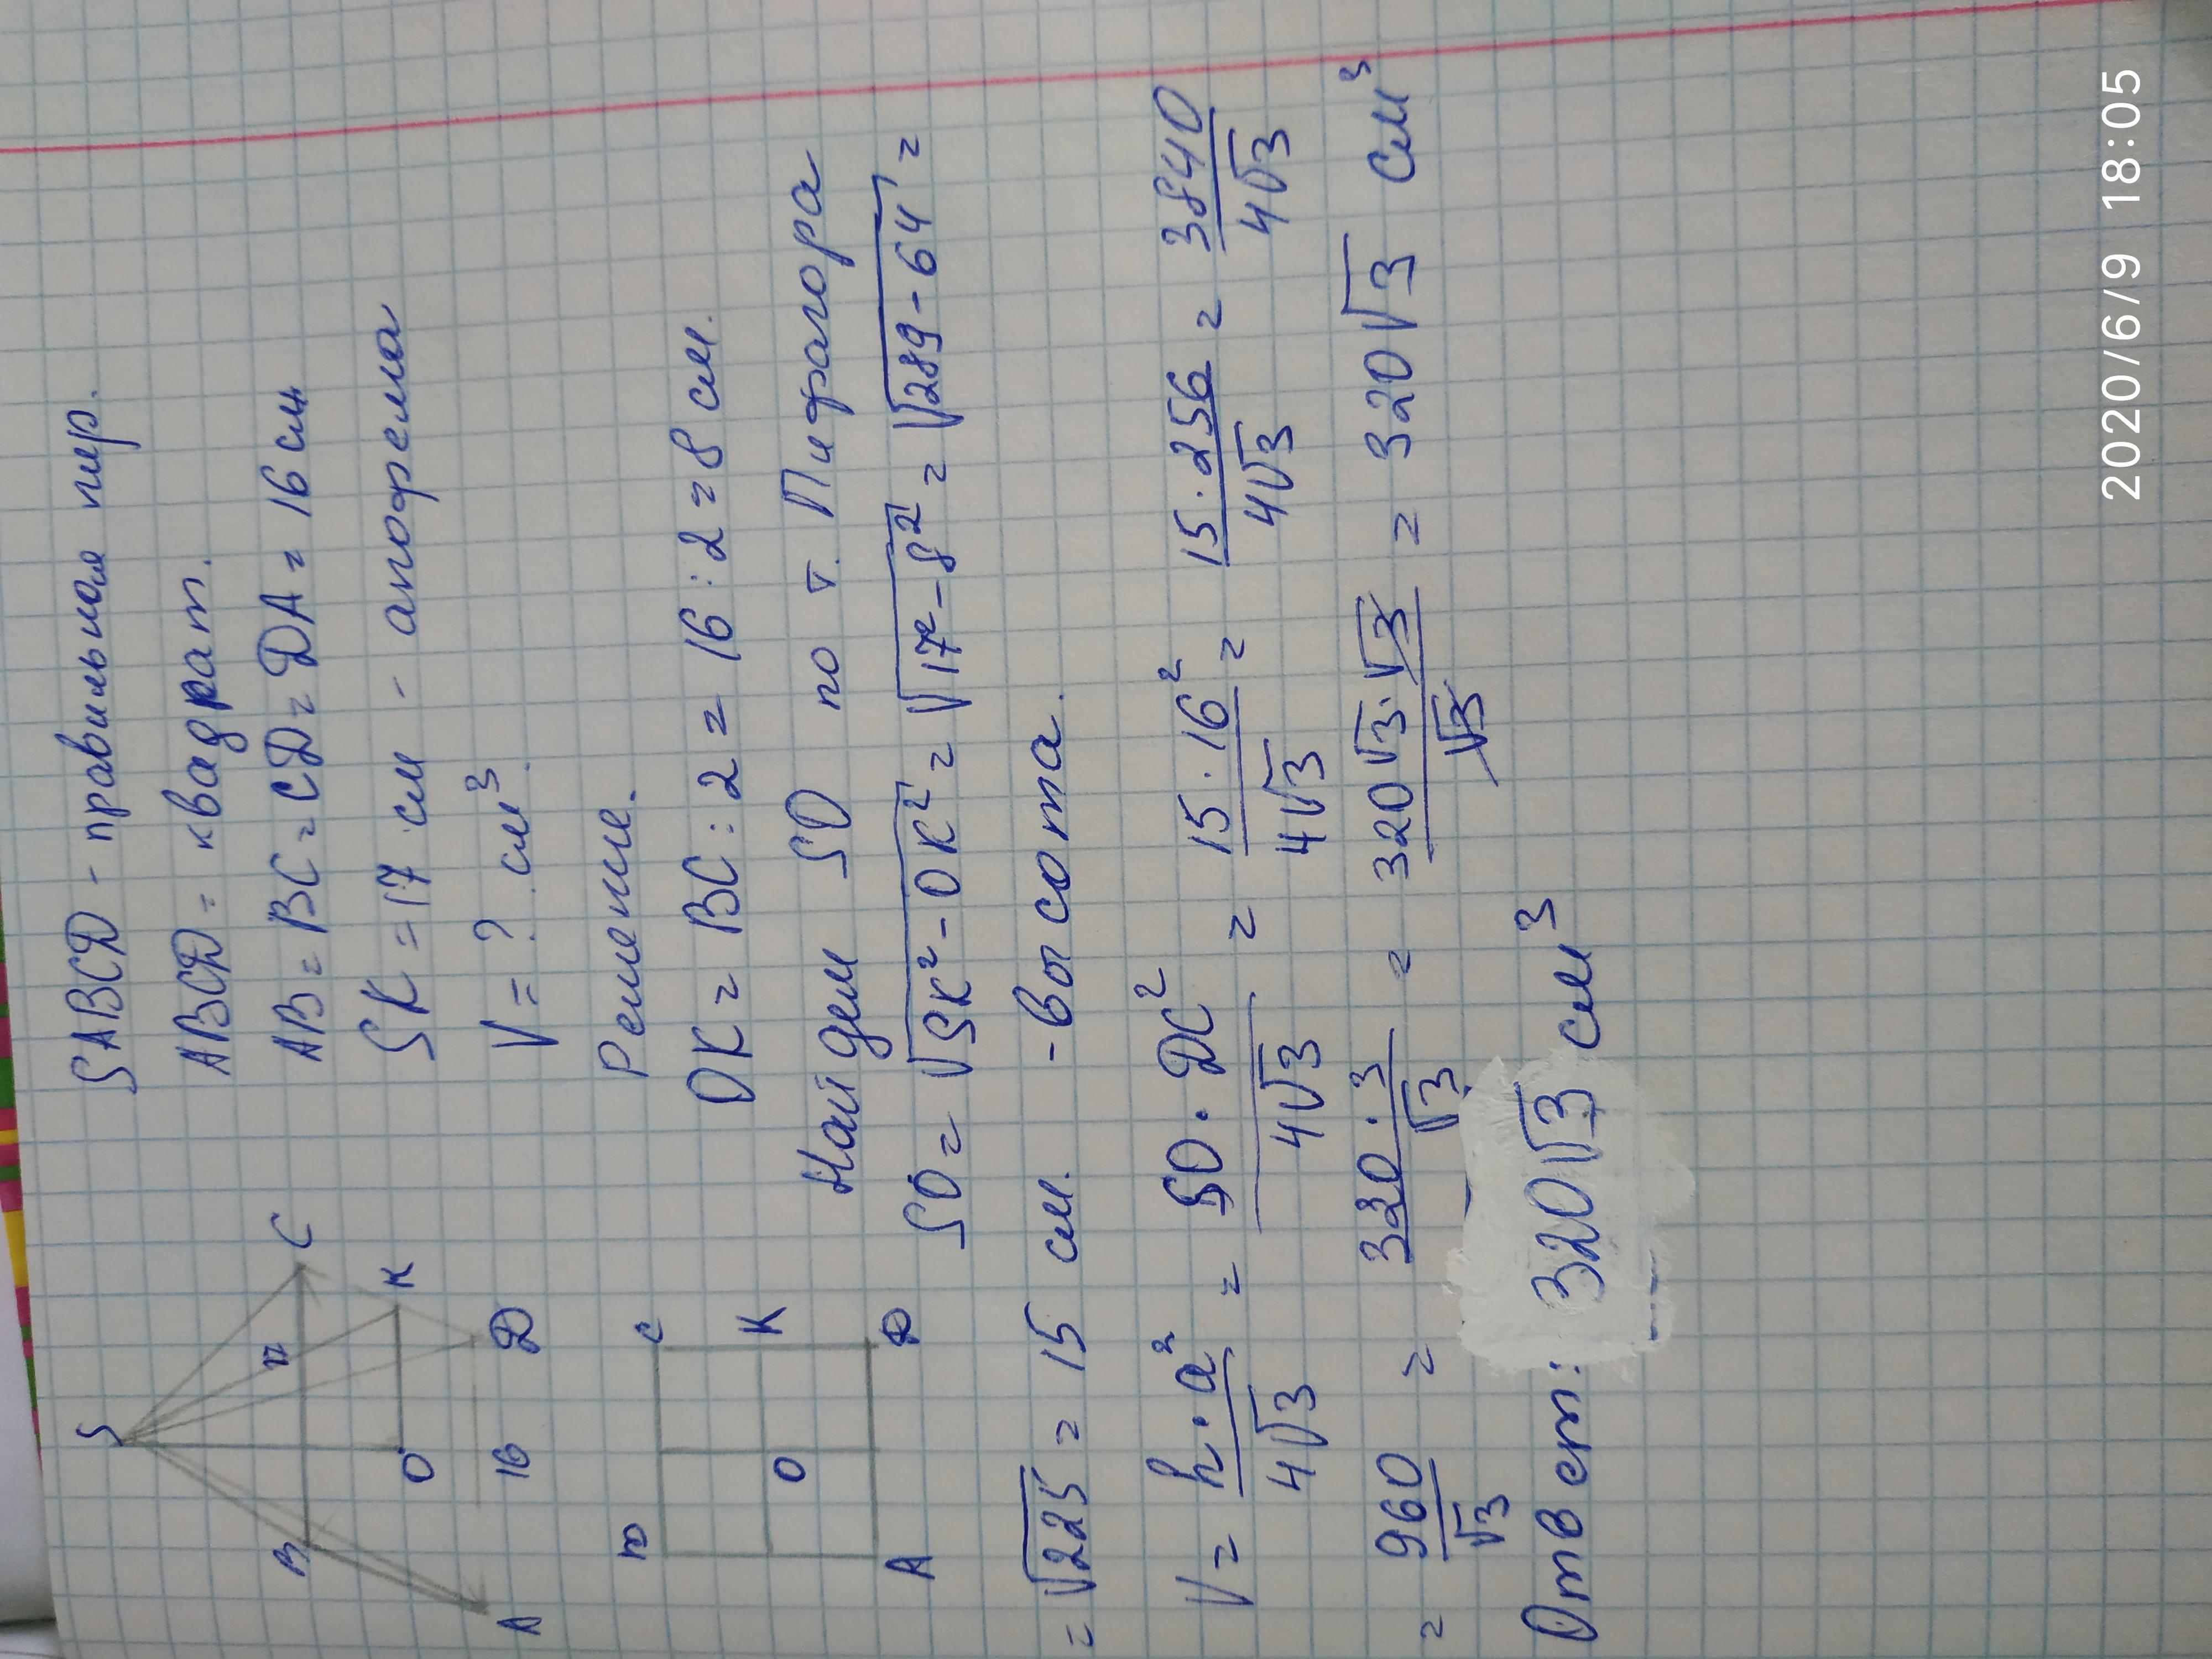 S
B
C
17
K
O
A
16
D
SABCD - правильная пир.
ABCD = квадрат.
AB = BC = CD = DA = 16 см
SK = 17 см - апофема
V = ? см³.
Решение.
B
C
O
K
A
D
OK = BC : 2 = 16 : 2 = 8 см.
Найдем SO по т. Пифагора
SO = √SK² - OK² = √17² - 8² = √289 - 64 =
= √225 = 15 см. - высота.
V = h · a² / 4√3 = SO · DC² / 4√3 = 15 · 16² / 4√3 = 15 · 256 / 4√3 = 3840 / 4√3
= 960 / √3 = 320 · 3 / √3 = 320√3 · √3 / √3 = 320√3 см³
Ответ: 320√3 см³
2020/6/9 18:05